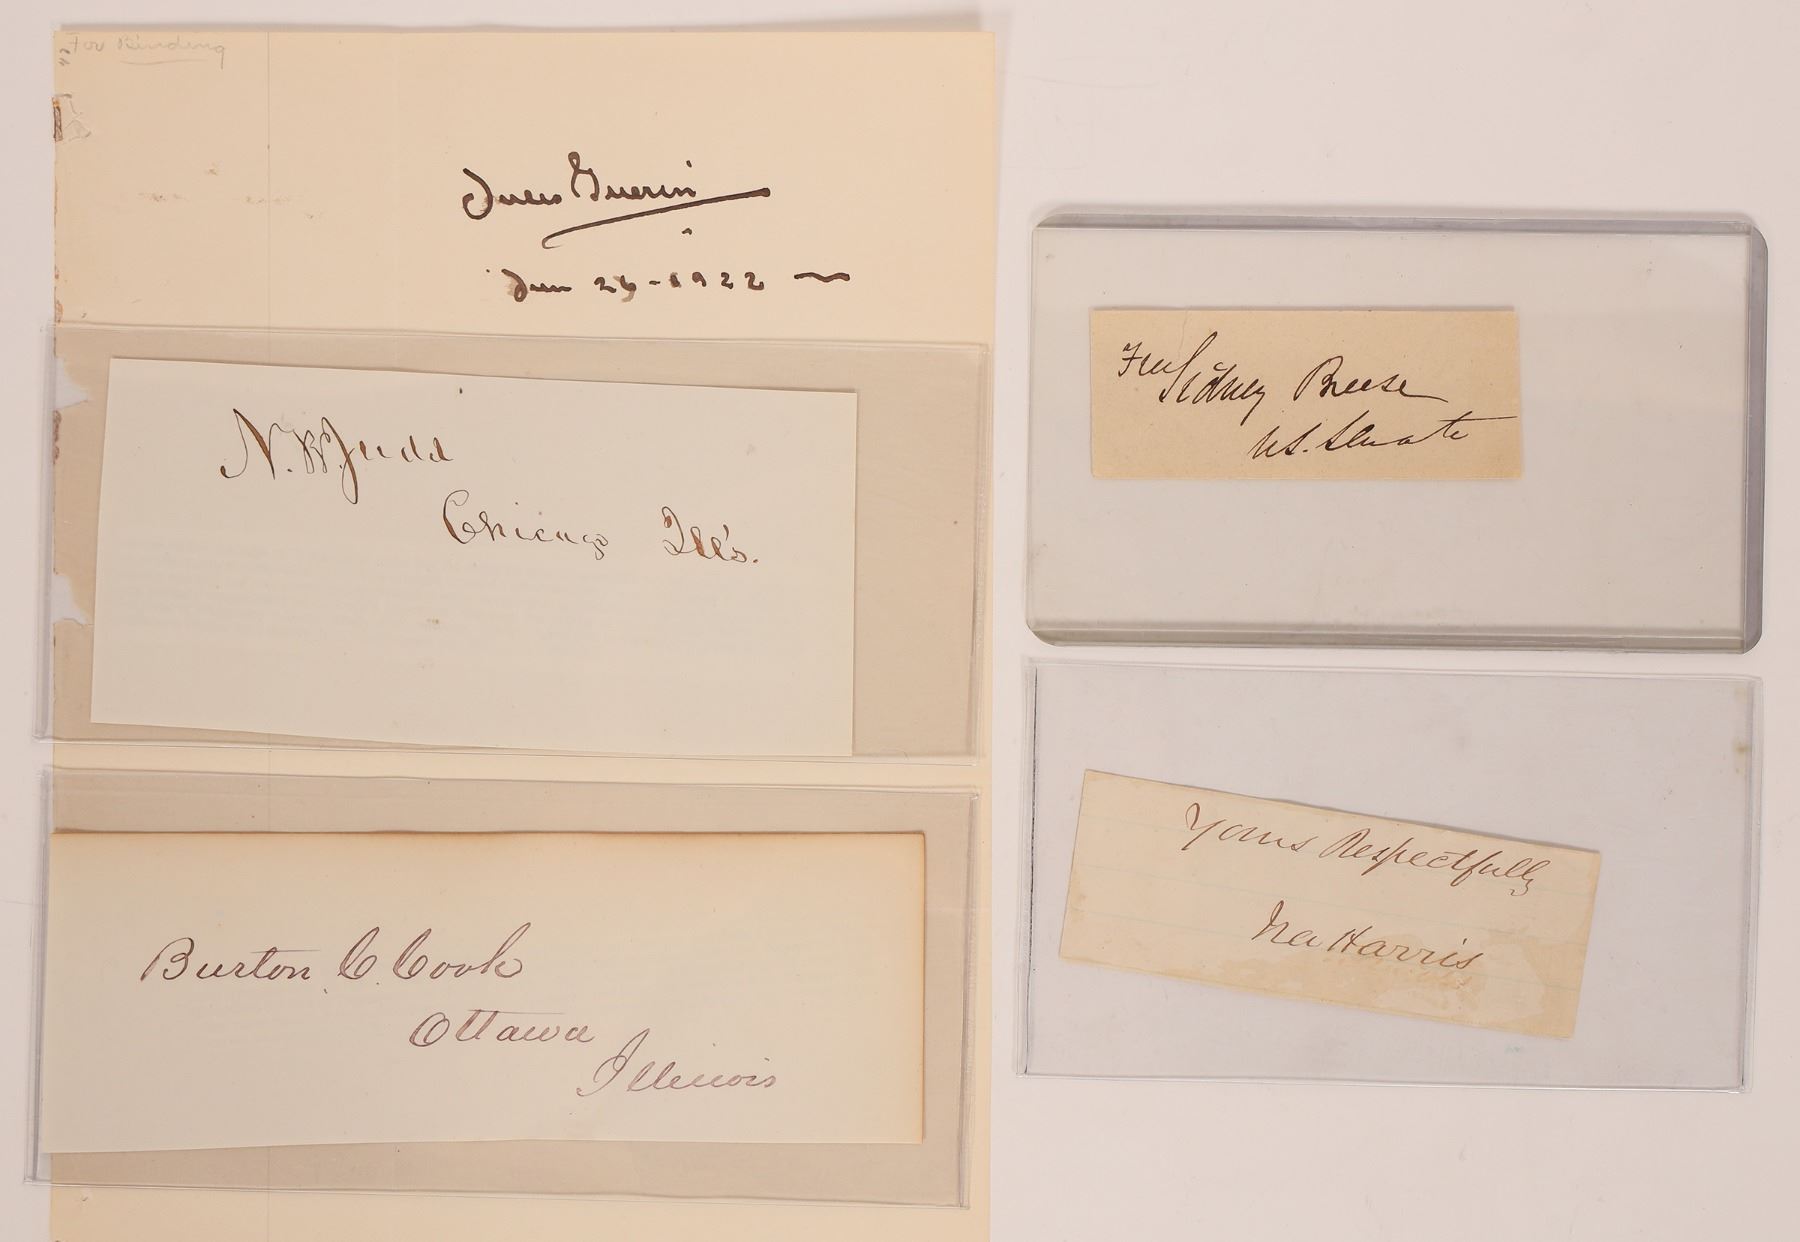 For Binding
Jules Guerin
Jun 26-1922
N. B. Judd
Chicago Ill's.
Burton C. Cook
Ottawa
Illinois
Free
Sidney Breese
U.S. Senate
Yours Respectfully
Ira Harris